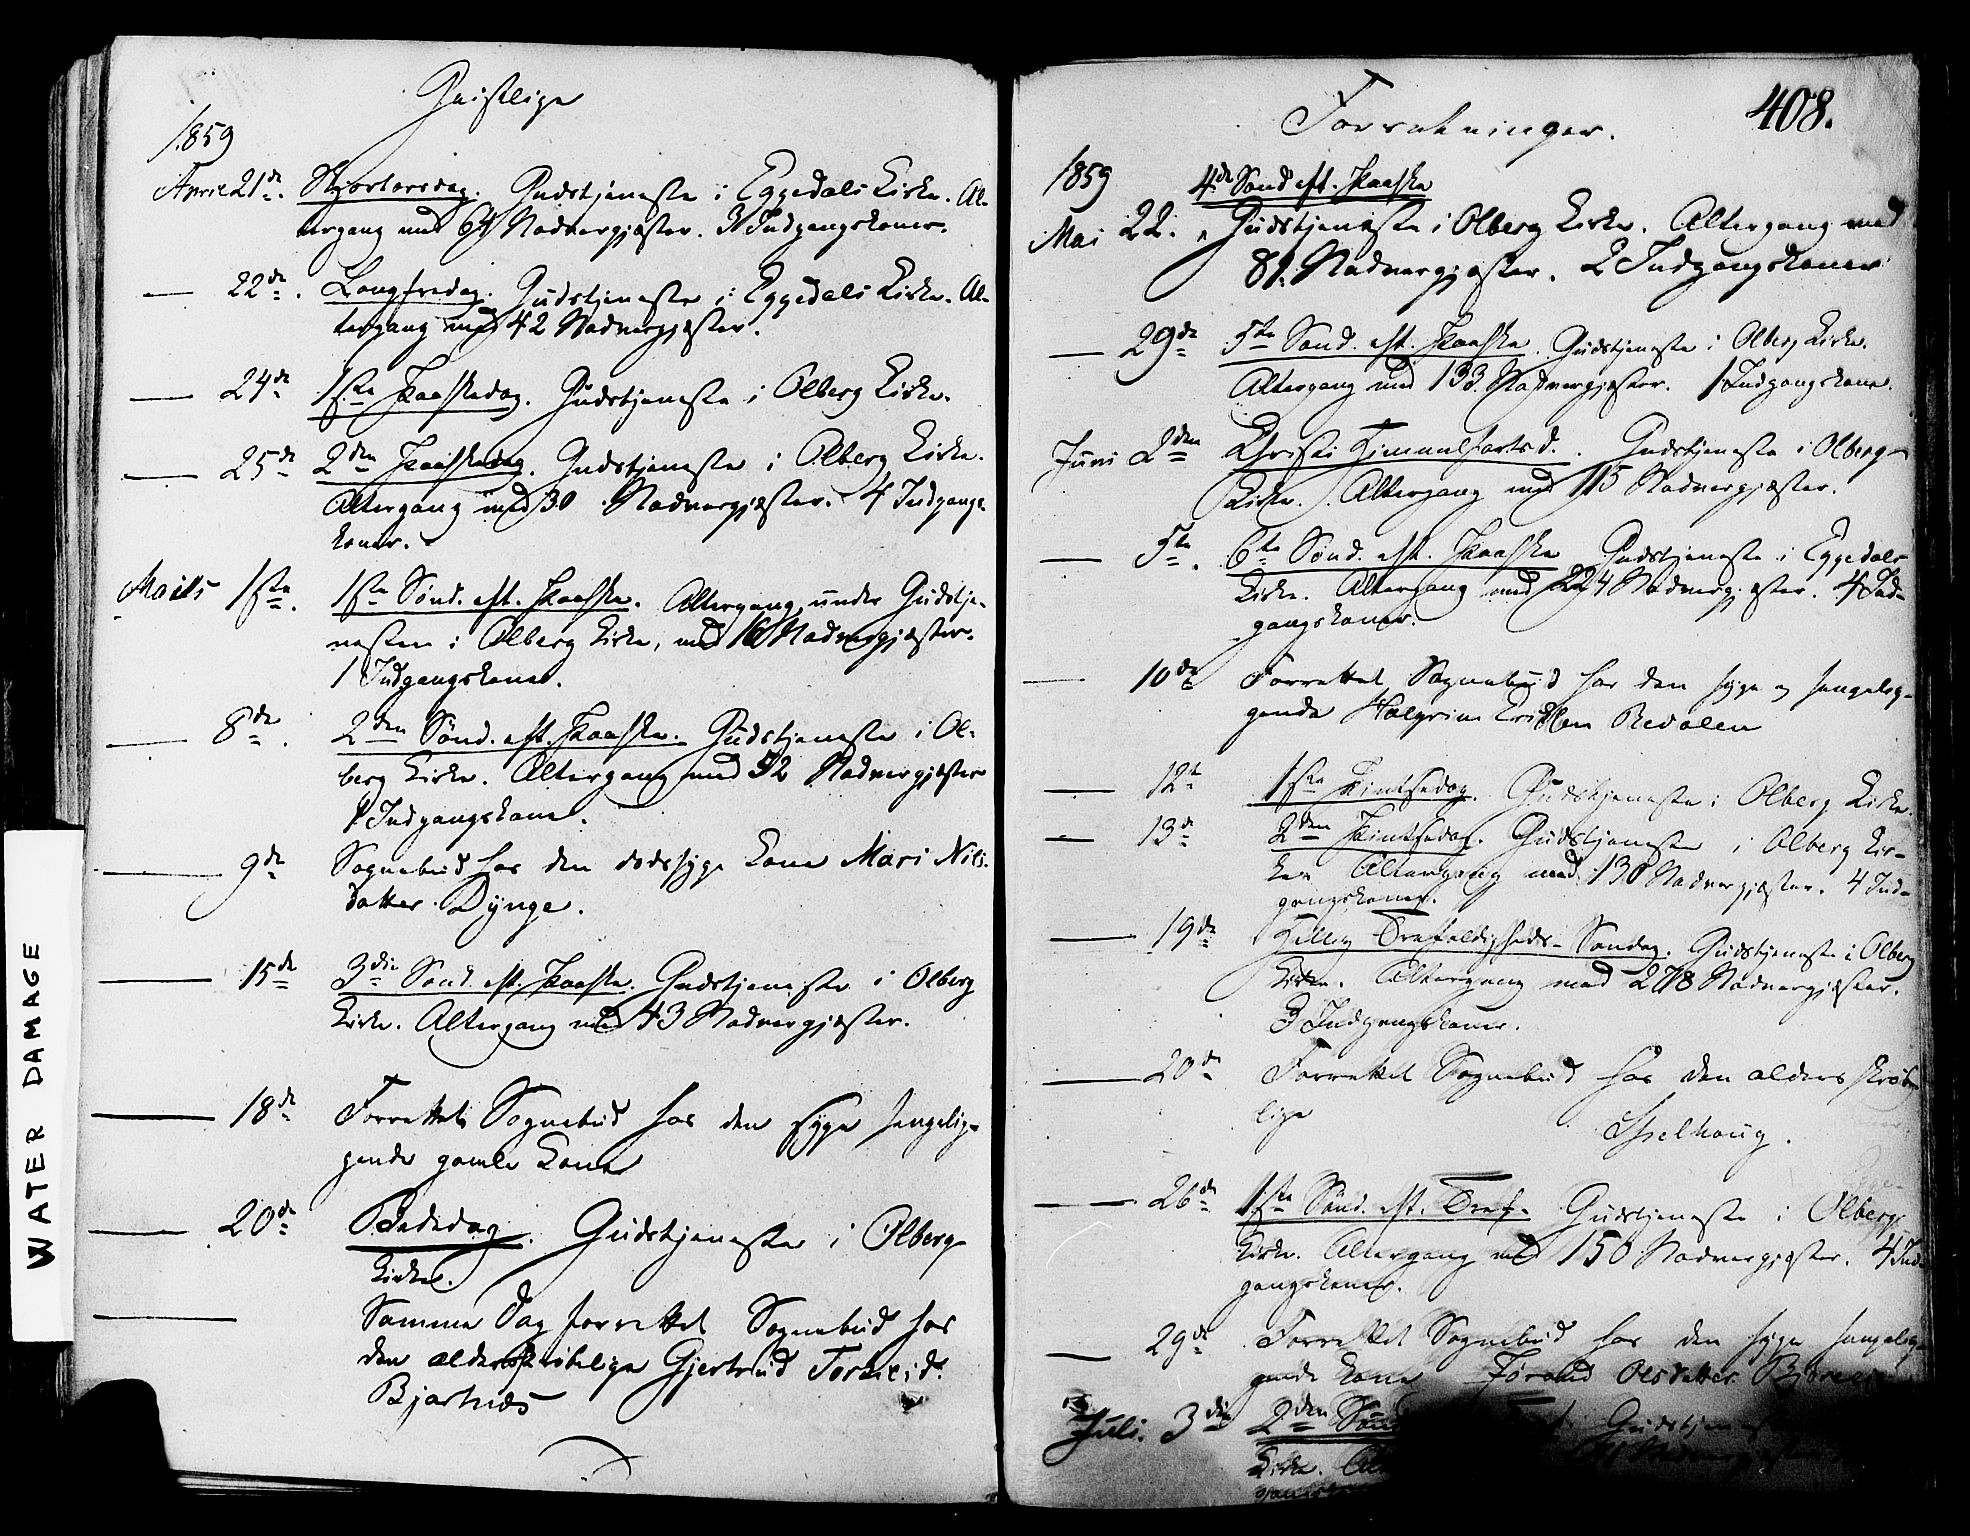 Geistlige
1859
April 21de. Skjertorsdag. Gudstjeneste i Eggedals Kirke. Al-
tergang med 64 Nadvergjæster. 3 Indgangskoner.
— 22de. Langfredag. Gudstjeneste i Eggedals Kirke. Al-
tergang med 42 Nadvergjæster.
— 24de 1ste Paaskedag. Gudstjeneste i Olberg Kirke.
— 25de 2den Paaskedag. Gudstjeneste i Olberg Kirke.
Altergang med 30 Nadvergjæster. 4 Indgangs-
koner.
Maits 1ste. 1ste Sønd. eft. Paaske. Altergang under Gudstje-
nesten i Olberg Kirke, med 16 Nadvergjæster.
1 Indgangskone.
— 8de. 2den Sønd. eft. Paaske. Gudstjeneste i Ol-
berg Kirke. Altergang med 52 Nadvergjæster
1 Indgangskone.
— 9de Sognebud hos den dødssyge Kone Mari Nils-
datter Dynge.
— 15de 3die Sønd. eft. Paaske. Gudstjeneste i Olberg
Kirke. Altergang med 43 Nadvergjæster.
— 18de Forrettet Sognebud hos den syge sengelig-
gende gamle Kone
— 20de Bededag. Gudstjeneste i Olberg
Kirke.
— Samme Dag forrettet Sognebud hos
den alderskrøbelige Gjertrud
Bjertnæs
408.
Forretninger.
1859 4de Sønd eft. Paaske
Mai 22. Gudstjeneste i Olberg Kirke. Altergang med
81 Nadvergjæster. 2 Indgangskoner
— 29de 5te Sønd. eft. Paaske. Gudstjeneste i Olberg Kirke.
Altergang med 133 Nadvergjæster. 1 Indgangskone.
Juni 2den Christi Himmelfartsd. Gudstjeneste i Olberg
Kirke. Altergang med 115 Nadvergjæster.
— 5te. 6te Sønd. eft. Paaske Gudstjeneste i Eggedals
Kirke. Altergang med 224 Nadvergjæster. 4 Ind-
gangskoner.
— 10de Forrettet Sognebud hos den syge og sengelig-
gende Halgrim Eriksen Redalen
— 12te 1ste Pintsedag. Gudstjeneste i Olberg Kirke.
— 13de 2den Pintsedag. Gudstjeneste i Olberg Kir-
ke. Altergang med 130 Nadvergjæster. 4 Ind-
gangskoner.
— 19de Hellig Trefoldigheds-Søndag. Gudstjeneste i Olberg
Kirke. Altergang med 278 Nadvergjæster.
3 Indgangskoner.
— 20de Forrettet Sognebud hos den alderskrøbe-
lige
— 26de 1ste Sønd. eft. Tref. Gudstjeneste i Olberg
Kirke. Altergang med 150 Nadvergjæster. 4 Ind-
gangskoner.
— 29de Forrettet Sognebud hos den syge sengelig-
gende Kone Jørand Olsdatter
Juli. 3die 2den Sønd Gudstjeneste
Kirke. Nadvergjæster
WATER DAMAGE